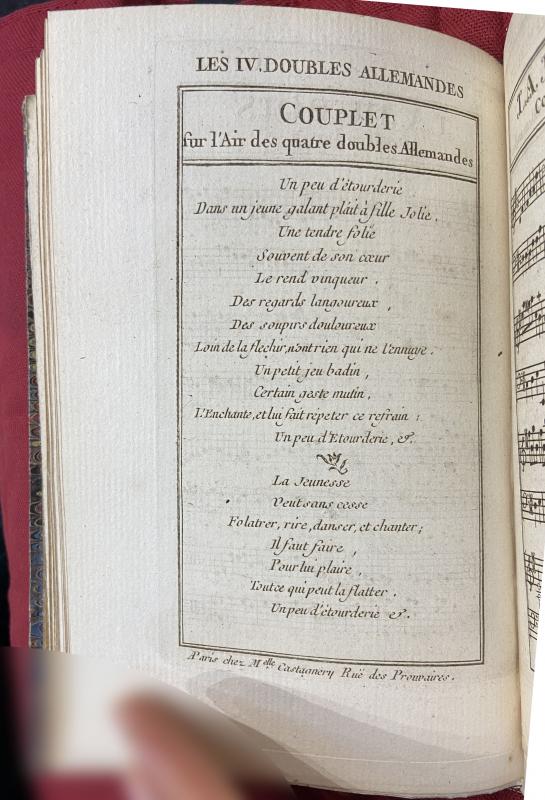 LES IV. DOUBLES ALLEMANDES
COUPLET
sur l'Air des quatre doubles Allemandes
Un peu d'étourderie
Dans un jeune galant plait à fille Jolie.
Une tendre folie
Souvent de son cœur
Le rend vinqueur.
Des regards langoureux,
Des soupirs douloureux
Loin de la flechir, n'ont rien qui ne l'ennuye.
Un petit jeu badin,
Certain geste mutin,
L'Enchante, et lui fait répeter ce refrain:
Un peu d'Etourderie, &.
La Jeunesse
Veut sans cesse
Folatrer, rire, danser, et chanter;
Il faut faire,
Pour lui plaire,
Tout ce qui peut la flatter.
Un peu d'étourderie &.
A Paris chez Melle Castagnery Ruë des Prouvaires.
LA
CO